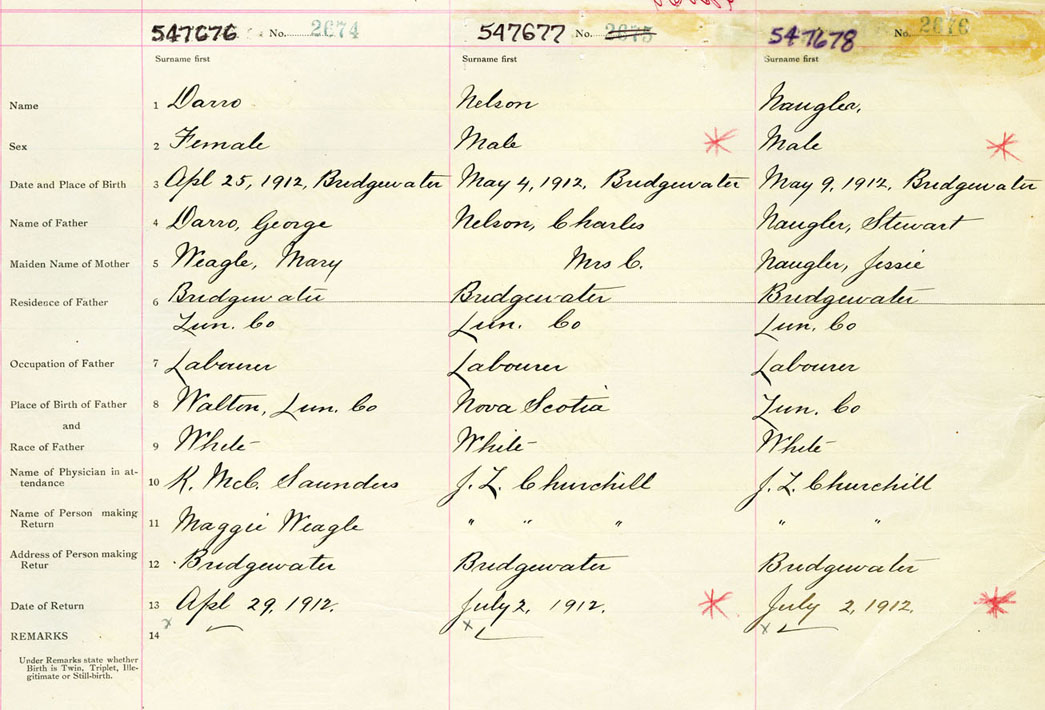 547676 No. 2674 547677 No. 2675 547678 No. 2676
Surname first Surname first Surname first
Name 1 Darro Nelson Naugler,
Sex 2 Female Male Male
Date and Place of Birth 3 Apl 25, 1912, Bridgewater May 4, 1912, Bridgewater May 9, 1912, Bridgewater
Name of Father 4 Darro, George Nelson, Charles Naugler, Stewart
Maiden Name of Mother 5 Weagle, Mary Mrs C. Naugler, Jessie
Residence of Father 6 Bridgewater Bridgewater Bridgewater
Lun. Co Lun. Co Lun. Co
Occupation of Father 7 Labourer Labourer Labourer
Place of Birth of Father 8 Walton, Lun. Co Nova Scotia Lun. Co
and
Race of Father 9 White White White
Name of Physician in at-
tendance 10 K. McC. Saunders J. L. Churchill J. L. Churchill
Name of Person making
Return 11 Maggie Weagle " " " " "
Address of Person making
Retur 12 Bridgewater Bridgewater Bridgewater
Date of Return 13 Apl 29, 1912. July 2, 1912. July 2, 1912.
REMARKS 14
Under Remarks state whether
Birth is Twin, Triplet, Ille-
gitimate or Still-birth.